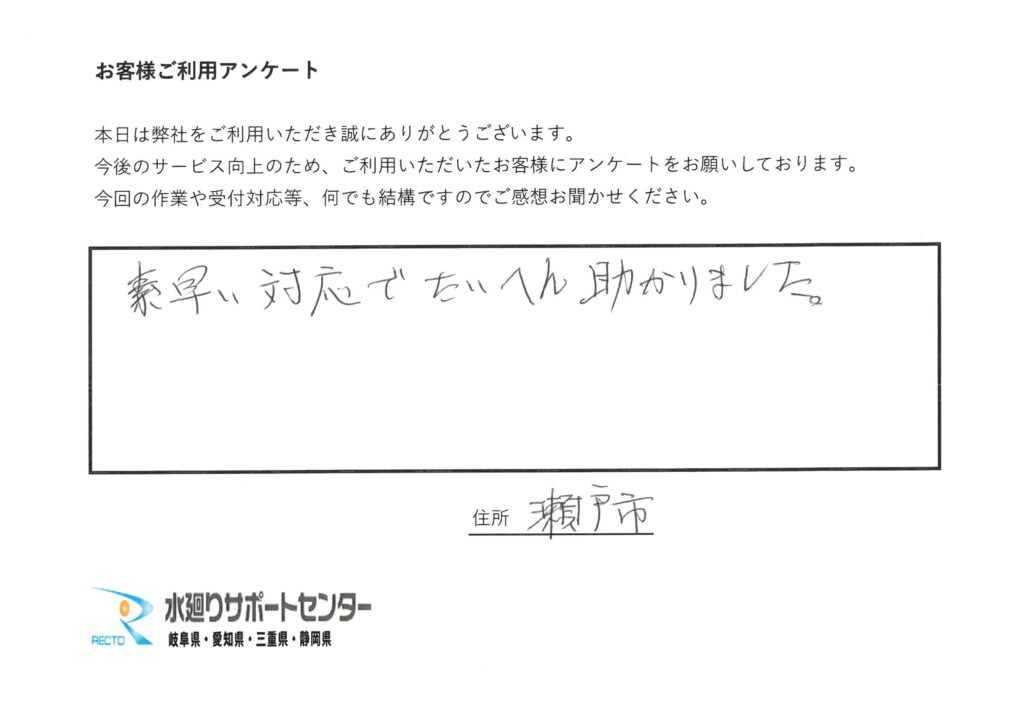 お客様ご利用アンケート
本日は弊社をご利用いただき誠にありがとうございます。
今後のサービス向上のため、ご利用いただいたお客様にアンケートをお願いしております。
今回の作業や受付対応等、何でも結構ですのでご感想お聞かせください。
素早い対応でたいへん助かりました。
住所 瀬戸市
RECTO 水廻りサポートセンター
岐阜県・愛知県・三重県・静岡県